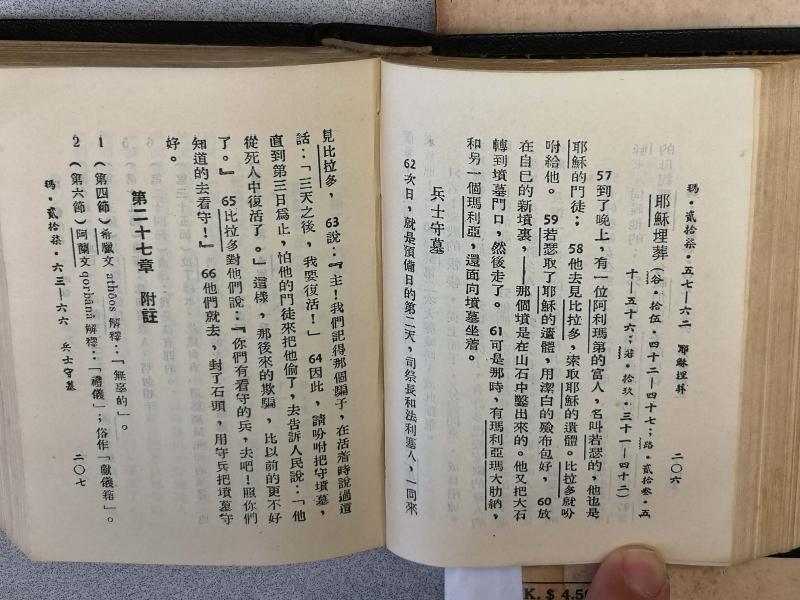 瑪・貳拾柒・五七—六二 耶穌埋葬 二〇六
耶穌埋葬（谷・拾伍・四十二—四十七；路・貳拾叁・五
十—五十六；若・拾玖・三十一—四十二）
57到了晚上，有一位阿利瑪第的富人，名叫若瑟的，他也是
耶穌的門徒；58他去見比拉多，索取耶穌的遺體。比拉多就吩
咐給他。59若瑟取了耶穌的遺體，用潔白的殮布包好，60放
在自已的新墳裏，——那個墳是在山石中鑿出來的。他又把大石
轉到墳墓門口，然後走了。61可是那時，有瑪利亞瑪大肋納，
和另一個瑪利亞，還面向墳墓坐着。
兵士守墓
62次日，就是預備日的第二天，司祭長和法利塞人，一同來
見比拉多，63說：『主！我們記得那個騙子，在活着時說過這
話：「三天之後，我要復活！」64因此，請吩咐把守墳墓，
直到第三日爲止，怕他的門徒來把他偷了，去告訴人民說：「他
從死人中復活了。」這樣，那後來的欺騙，比以前的更不好
了。』65比拉多對他們說：『你們有看守的兵，去吧！照你們
知道的去看守！』66他們就去，封了石頭，用守兵把墳墓守
好。
第二十七章 附註
1（第四節）希臘文 athôos 解釋：「無辜的」。
2（第六節）阿蘭文 qorbânâ 解釋：「禮儀」；俗作「獻儀箱」。
瑪・貳拾柒・六三—六六 兵士守墓 二〇七
K. $ 4.50